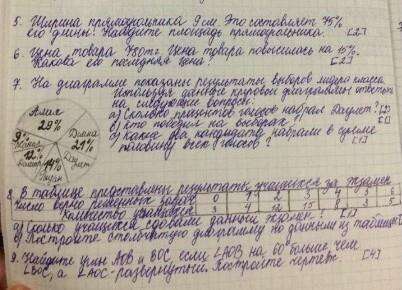 5. Ширина прямоугольника 9 см. Это составляет 75%
его длины. Найдите площадь прямоугольника. [2]
6. Цена товара 780тг. Цена товара повысилась на 15%.
Какова его последняя цена? [2]
7. На диаграмме показаны результаты выборов лидера класса.
Используя данные круговой диаграммы ответьте
на следующие вопросы:
а) сколько процентов голосов набрал Даулет?
в) кто победил на выборах?
с) какие два кандидата набрали в сумме
половину всех голосов?
Алия
29%
Диана
21%
Даулет
14%
12%
9%
8. В таблице представлены результаты учащихся за экзамен
Число верно решенных задач 0 1 2 3 4 5 6
Количество учащихся
а) сколько учащихся сдавали данный экзамен?
в) Постройте столбчатую диаграмму по данным из таблицы
9. Найдите углы АОВ и ВОС если ∠АОВ на 60 больше, чем
∠ВОС, а ∠АОС - развернутый. Постройте чертеж. [4]